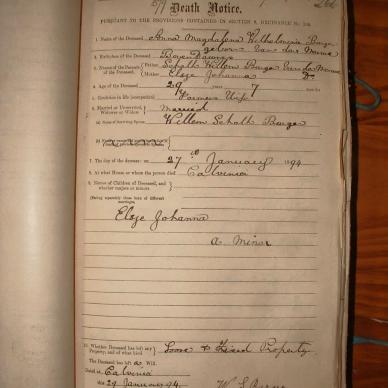 Death Notice.
PURSUANT TO THE PROVISIONS CONTAINED IN SECTION 9, ORDINANCE No. 104.
1. Name of the Deceased Anna Magdalena Wilhelmina Burger
geboren van der Merwe
2. Birthplace of the Deceased
3. Names of the Parents of the Deceased. Father Schalk Willem Burger van der Merwe
Mother Elsje Johanna Do
4. Age of the Deceased 29 years 7
5. Condition in life (occupation) Farmers Wife
6. Married or Unmarried, Widower or Widow Married
(a) Name of Surviving Spouse Willem Schalk Burger
7. The day of the decease on 27th January 1894
8. At what House or where the person died Calvinia
9. Names of Children of Deceased, and whether majors or minors
(Being separately those born of different marriages)
Elsje Johanna
a Minor
10. Whether Deceased has left any Property, and of what kind Loose & Fixed Property
The Deceased has left a Will.
Dated at Calvinia
this 29 January 94. W. S. Burger